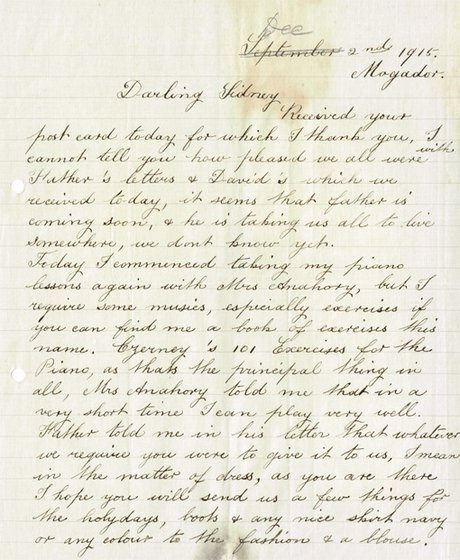 Dec
September 2nd 1915.
Mogador.
Darling Sidney
Received your
post card today for which I thank you, I
cannot tell you how pleased we all were with
Father's letters & David's which we
received today, it seems that father is
coming soon, & he is taking us all to live
somewhere, we dont know yet.
Today I commenced taking my piano
lessons again with Mrs Anahory, but I
require some musics, especially exercises if
you can find me a book of exercises this
name. Czerney's 101 Exercises for the
Piano, as thats the principal thing in
all, Mrs Anahory told me that in a
very short time I can play very well.
Father told me in his letter that whatever
we requiere you were to give it to us, I mean
in the matter of dress, as you are there
I hope you will send us a few things for
the holydays, boots & any nice skirt navy
or any colour to the fashion & a blouse.